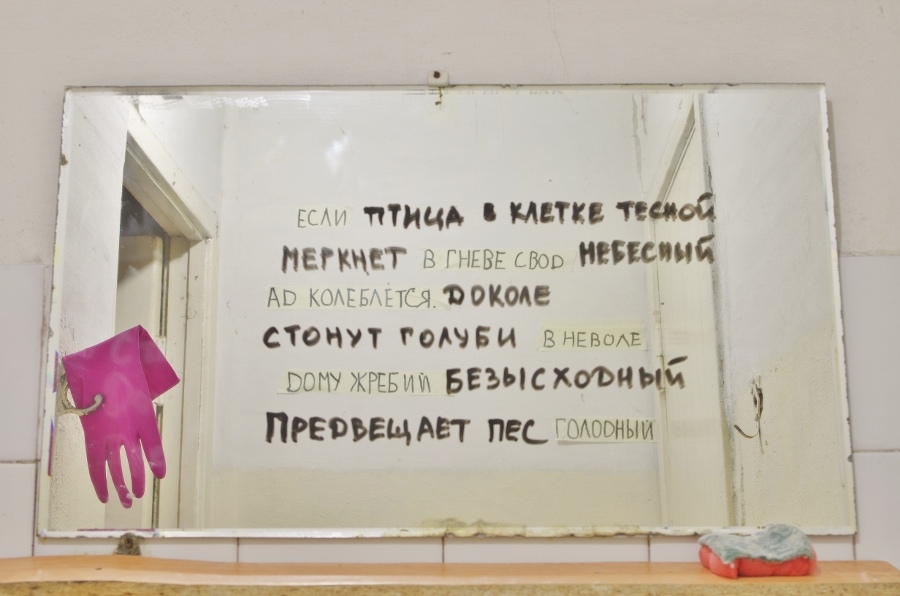 ЕСЛИ ПТИЦА В КЛЕТКЕ ТЕСНОЙ
МЕРКНЕТ В ГНЕВЕ СВОД НЕБЕСНЫЙ
АД КОЛЕБЛЕТСЯ. ДОКОЛЕ
СТОНУТ ГОЛУБИ В НЕВОЛЕ
ДОМУ ЖРЕБИЙ БЕЗЫСХОДНЫЙ
ПРЕДВЕЩАЕТ ПЕС ГОЛОДНЫЙ